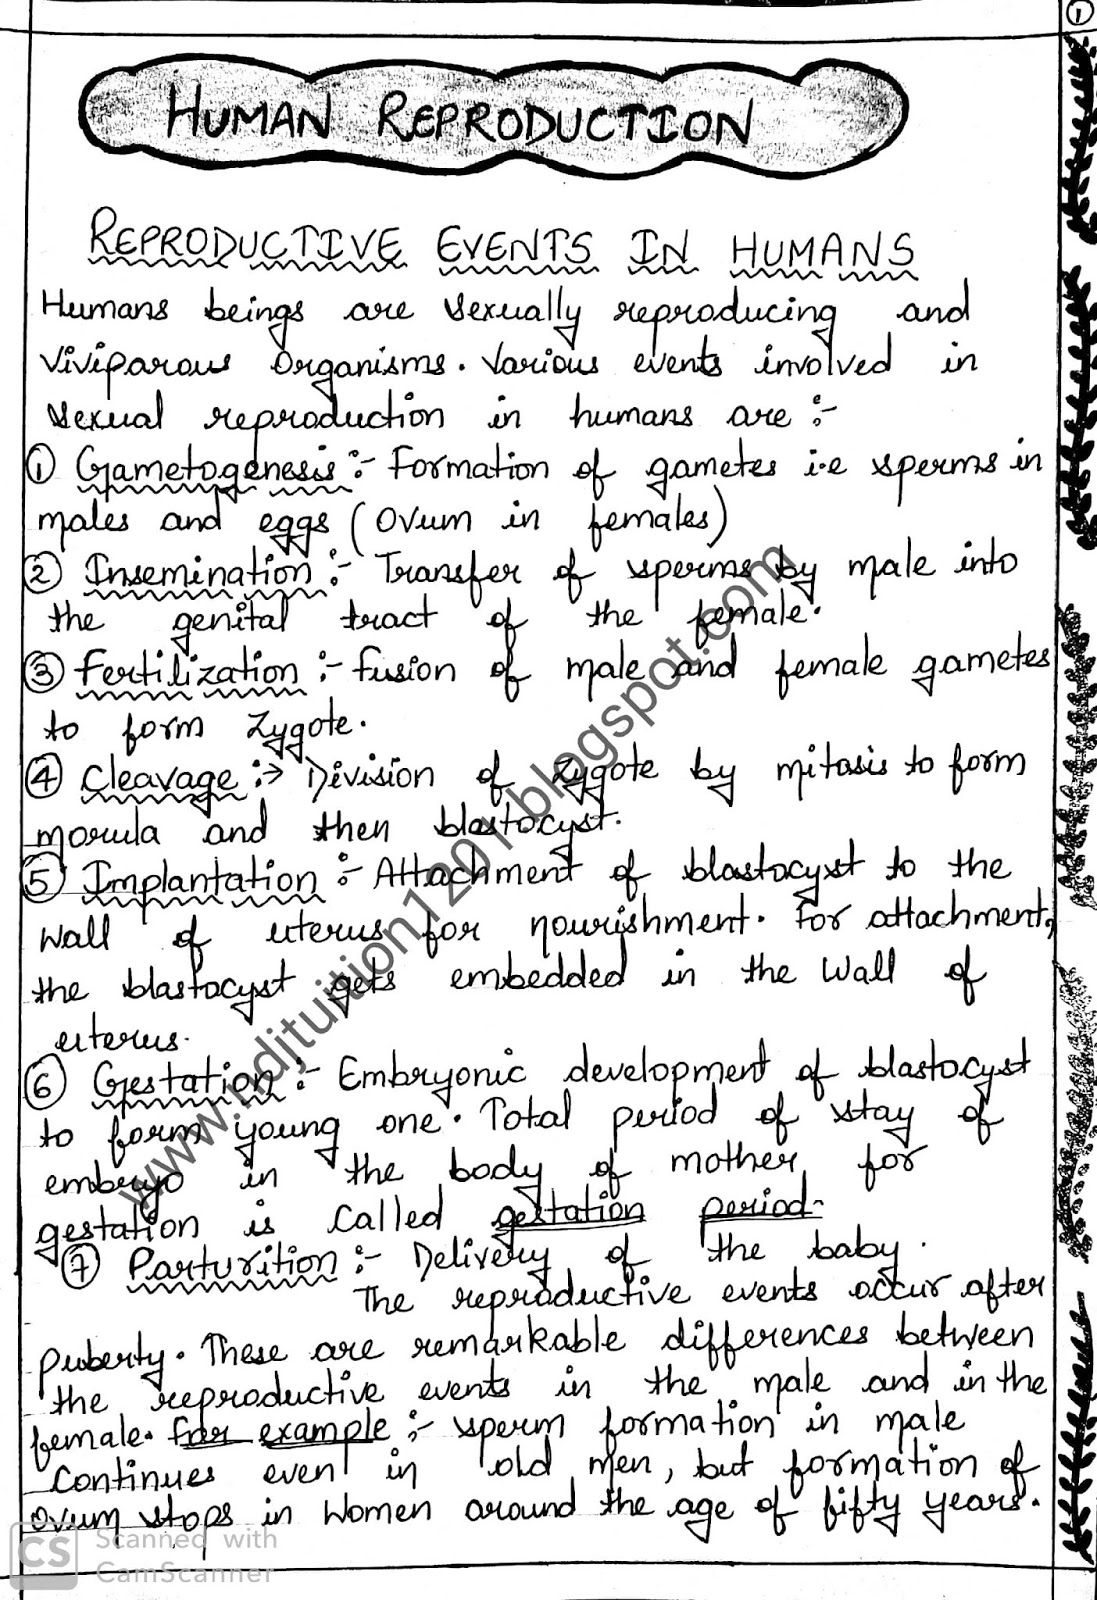 1
HUMAN REPRODUCTION
REPRODUCTIVE EVENTS IN HUMANS
Humans beings are sexually reproducing and
viviparous organisms. Various events involved in
sexual reproduction in humans are :-
① Gametogenesis :- Formation of gametes i.e sperms in
males and eggs (Ovum in females)
② Insemination :- Transfer of sperms by male into
the genital tract of the female.
③ Fertilization :- fusion of male and female gametes
to form zygote.
④ Cleavage :→ Division of zygote by mitosis to form
morula and then blastocyst.
⑤ Implantation :- Attachment of blastocyst to the
wall of uterus for nourishment. For attachment,
the blastocyst gets embedded in the wall of
uterus.
⑥ Gestation :- Embryonic development of blastocyst
to form young one. Total period of stay of
embryo in the body of mother for
gestation is called gestation period.
⑦ Parturition :- Delivery of the baby.
The reproductive events occur after
puberty. These are remarkable differences between
the reproductive events in the male and in the
female. For example :- sperm formation in male
continues even in old men, but formation of
ovum stops in women around the age of fifty years.
www.ndjtuition1201.blogspot.com
CS Scanned with
CamScanner